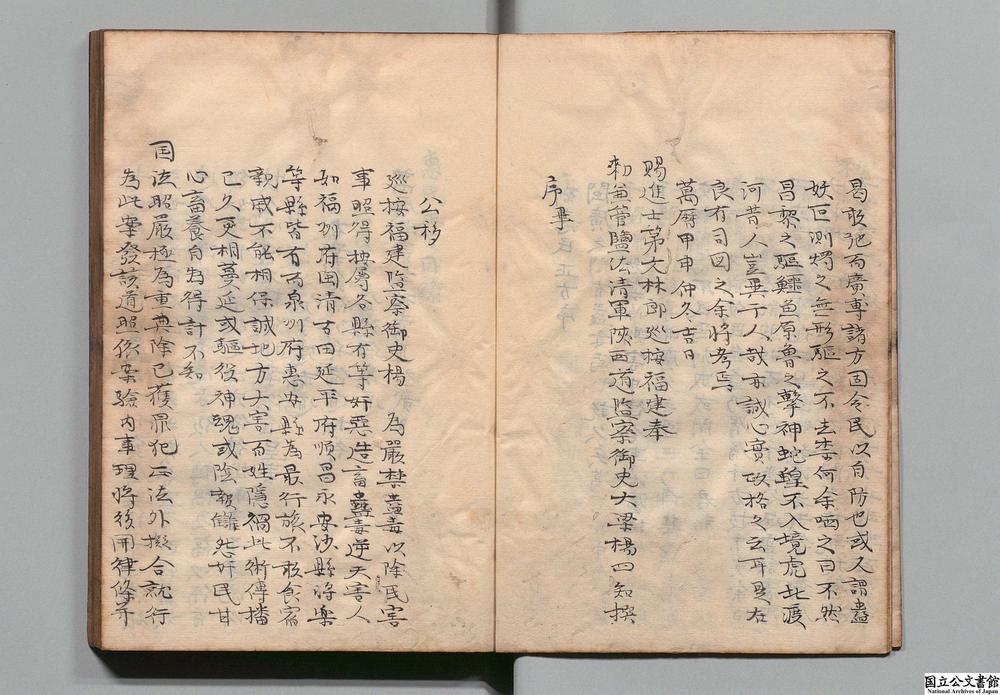 曷敢犯而廣專諸方固令民以自防也或又謂蠱
妖叵測燭之無形驅之不去柰何余哂之曰不然
昌黎之驅鱷魚原魯之擊神蛇蝗不入境虎北渡
河昔人豈異于人哉亦誠心實政格之云耳是在
良有司図之余將考焉
萬曆甲申仲冬吉日
賜進士第文林郎巡按福建奉
勑兼管鹽法清軍陝西道監察御史大梁楊四知撰
序畢
公移
巡按福建監察御史楊 為嚴禁蠱毒以除民害
事照得按屬各縣有等奸惡造畜蠱毒逆天害人
如福州府閩清古田延平府順昌永安沙縣將樂
等縣皆有而泉州府惠安縣為最行旅不敢食宿
親戚不能相保誠地方大害百姓隱禍此術傳播
已久更相蔓延或驅役神魂或陰報讎怨奸民甘
心畜養自為得計不知
国法昭嚴極為重典除已獲罪犯正法外擬合就行
為此案發該道照依案驗內事理將後開律條并
国立公文書館
National Archives of Japan